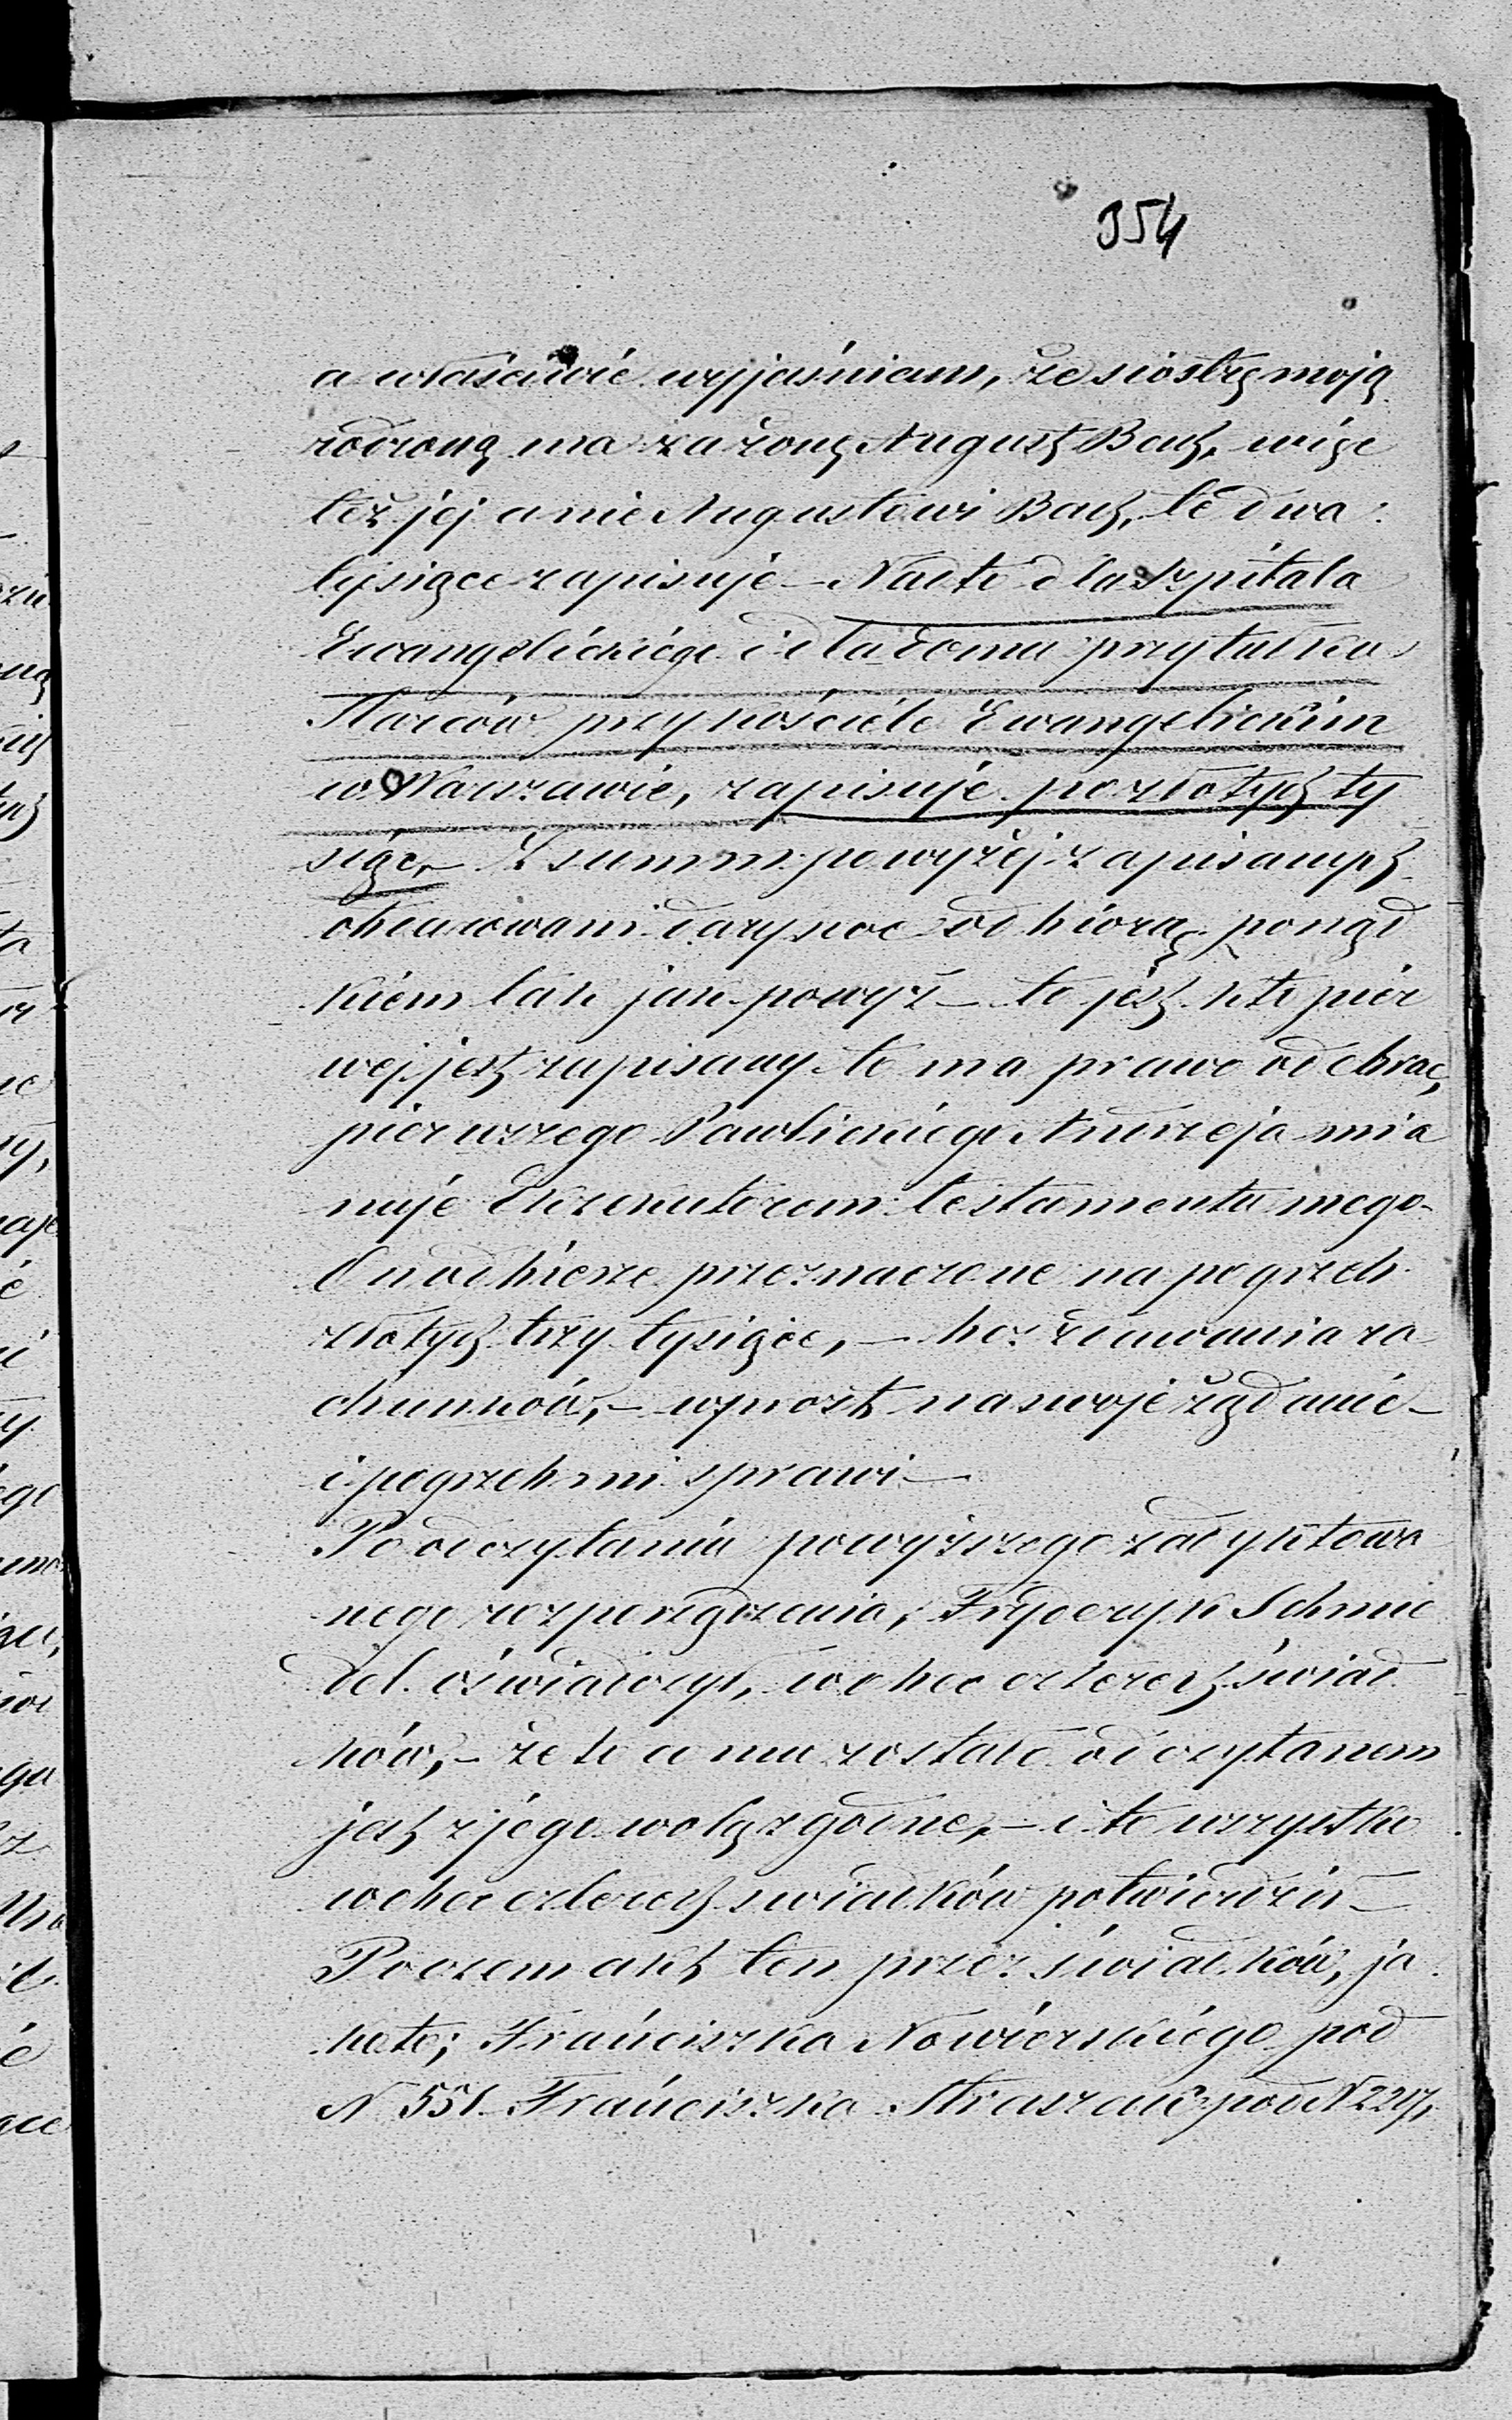 354
a właściwie wyjaśniam, że siostrę moją
rodzoną ma za żonę August Bach, więc
też jej a nie Augustowi Bach, te dwa
tysiące zapisuje – Nadto dla szpitala
Ewangelickiego i dla domu przytułku
Starców przy kościele Ewangelickim
w Warszawie, zapisuje po złotych ty
siąc, – Z summ powyżej zapisanych
obdarowani darynoc odbiorą porząd
kiem tak jak powyż – to jest kto pier
wej jest zapisany to ma prawo odebrac,
pierwszego Pawlickiego Andrzeja mia
nuje Exekutorem testamentu mego –
On odbierze przeznaczone na pogrzeb
złotych trzy tysiące, – bez zdawania ra
chunków, – wprost na swoje żądanie –
i pogrzeb mi sprawi –
Po odczytaniu powyższego zadyktowa
nego rozporządzenia, Fryderyk Schmie
del oświadczył, wobec czterech świad
ków, – że to a mu zostało odczytanem
jest z jego wolą zgodne, – i to wszystko
wobec czterech swiadków potwierdził –
Poczem akt ten przez świadków, ja
koto; Franciszka Nowierskiego pod
N 551. Franciszka Straszak pod N 2217,